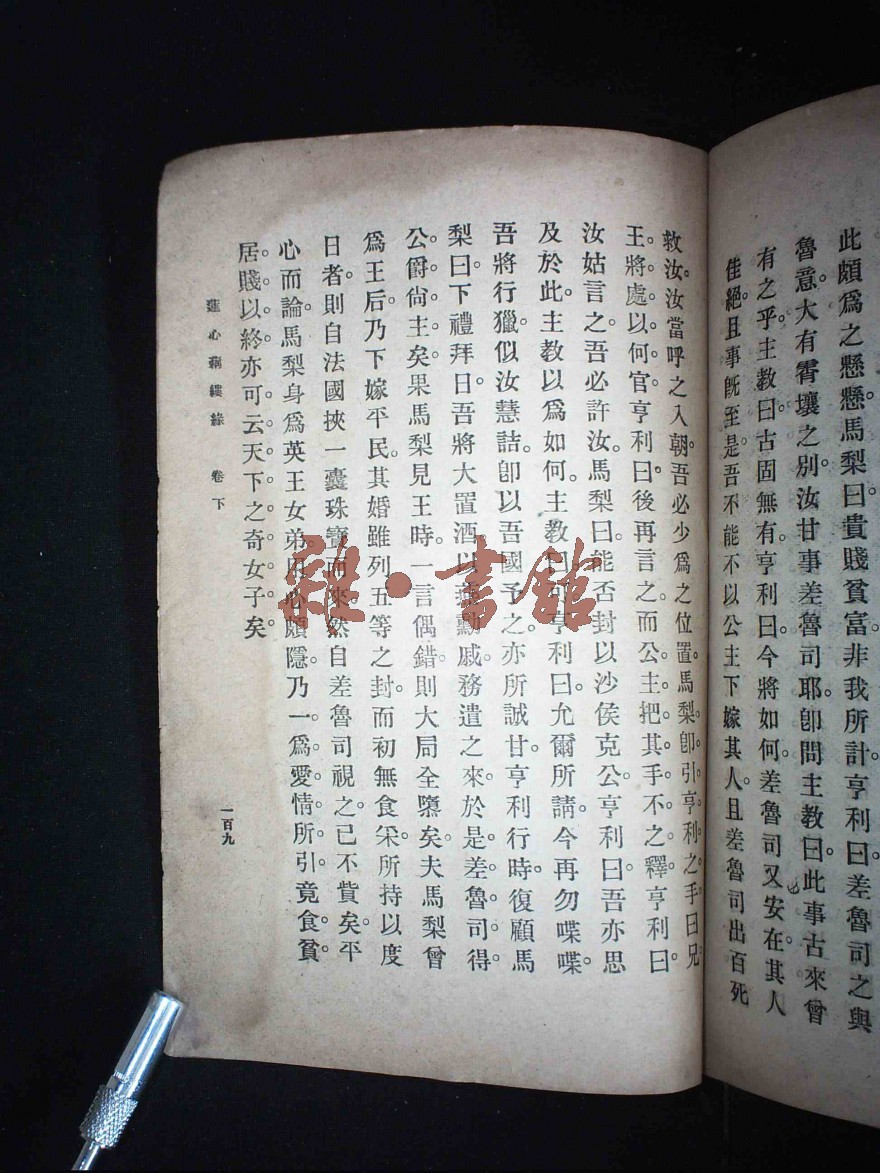 此頗爲之懸懸馬梨曰貴賤貧富非我所計亨利曰差魯司之與
魯意大有霄壤之別汝甘事差魯司耶卽問主教曰此事古來曾
有之乎主教曰古固無有亨利曰今將如何差魯司又安在其人
佳絕且事旣至是吾不能不以公主下嫁其人且差魯司出百死
救汝汝當呼之入朝吾必少爲之位置馬梨卽引亨利之手曰兄
王將處以何官亨利曰後再言之而公主把其手不之釋亨利曰
汝姑言之吾必許汝馬梨曰能否封以沙侯克公亨利曰吾亦思
及於此主教以爲如何主教曰可亨利曰允爾所請今再勿喋喋
吾將行獵似汝慧詰卽以吾國予之亦所誠甘亨利行時復顧馬
梨曰下禮拜日吾將大置酒以燕勳戚務遣之來於是差魯司得
公爵尙主矣果馬梨見王時一言偶錯則大局全墮矣夫馬梨曾
爲王后乃下嫁平民其婚雖列五等之封而初無食采所持以度
日者則自法國挾一囊珠寶而來然自差魯司視之已不貲矣平
心而論馬梨身爲英王女弟用心頗隱乃一爲愛情所引竟食貧
居賤以終亦可云天下之奇女子矣
蓮心藕縷緣 卷下
一百九
雜·書館